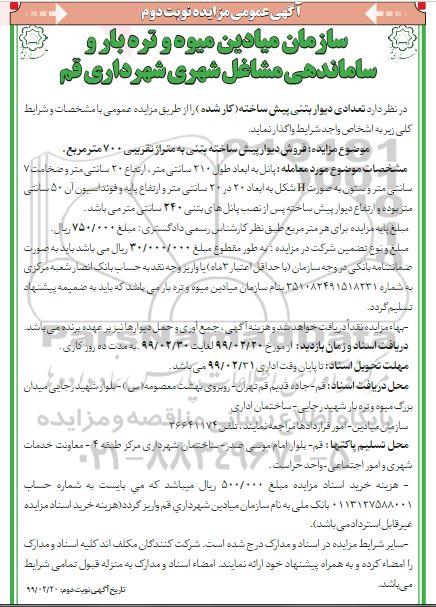 آگهی عمومی مزایده نوبت دوم
سازمان میادین میوه و تره بار و
ساماندهی مشاغل شهری شهرداری قم
در نظر دارد تعدادی دیوار بتنی پیش ساخته (کار شده) را از طریق مزایده عمومی با مشخصات و شرایط
کلی زیر به اشخاص واجد شرایط واگذار نماید.
موضوع مزایده: فروش دیوار پیش ساخته بتنی به متراژ تقریبی ۷۰۰ متر مربع.
مشخصات موضوع مورد معامله: پانل به ابعاد طول ۲۱۰ سانتی متر، ارتفاع ۳۰ سانتی متر و ضخامت ۷
سانتی متر و ستون به صورت H شکل به ابعاد ۲۰ در ۲۰ سانتی متر و ارتفاع پایه و فونداسیون آن ۵۰ سانتی
متر بوده و ارتفاع دیوار پیش ساخته پس از نصب پانل های بتنی ۲۴۰ سانتی متر می باشد.
مبلغ پایه مزایده برای هر متر مربع طبق نظر کارشناس رسمی دادگستری: مبلغ ۷۵۰/۰۰۰ ریال.
مبلغ و نوع تضمین شرکت در مزایده: به طور مقطوع مبلغ ۳۰/۰۰۰/۰۰۰ ریال می باشد باید به صورت
ضمانتنامه بانکی در وجه سازمان (با حداقل اعتبار ۳ ماه) یا واریز وجه نقد به حساب بانک انصار شعبه مرکزی
به شماره ۳۵۱۰۸۲۴۹۱۵۱۸۲۳۱ بنام سازمان میادین میوه و تره بار می باشد که باید به ضمیمه پیشنهاد
تسلیم گردد.
-بهاء مزایده نقداً دریافت خواهد شد و هزینه آگهی، جمع آوری و حمل دیوارها نیز بر عهده برنده می باشد.
دریافت اسناد و زمان بازدید: از مورخ ۹۹/۰۲/۲۰ لغایت ۹۹/۰۲/۳۰. به مدت ده روز کاری.
مهلت تحویل اسناد: تا پایان وقت اداری ۹۹/۰۲/۳۱ می باشد.
محل دریافت اسناد: قم- جاده قدیم قم تهران- روبروی بهشت معصومه (س)- بلوار شهید رجایی میدان
بزرگ میوه و تره بار شهید رجایی- ساختمان اداری
سازمان میادین- امور قراردادها مراجعه نمایند، تلفن ۳۶۶۴۱۱۷۴
محل تسلیم پاکتها: قم- بلوار امام موسی صدر- ساختمان شهرداری مرکز طبقه ۴- معاونت خدمات
شهری و امور اجتماعی- واحد حراست.
- هزینه خرید اسناد مزایده مبلغ ۵۰۰/۰۰۰ ریال میباشد که می بایست به شماره حساب
۰۱۱۳۱۲۷۵۸۸۰۰۱ بانک ملی به نام سازمان میادین شهرداری قم واریز گردد (هزینه خرید اسناد مزایده
غیر قابل استرداد می باشد).
-سایر شرایط مزایده در اسناد و مدارک درج شده است. شرکت کنندگان مکلف اند کلیه اسناد و مدارک
را امضاء کرده و به همراه پیشنهاد خود ارائه نمایند. امضاء اسناد و مدارک به منزله قبول تمامی شرایط
می باشد.
تاریخ آگهی نوبت دوم: ۹۹/۰۲/۲۰